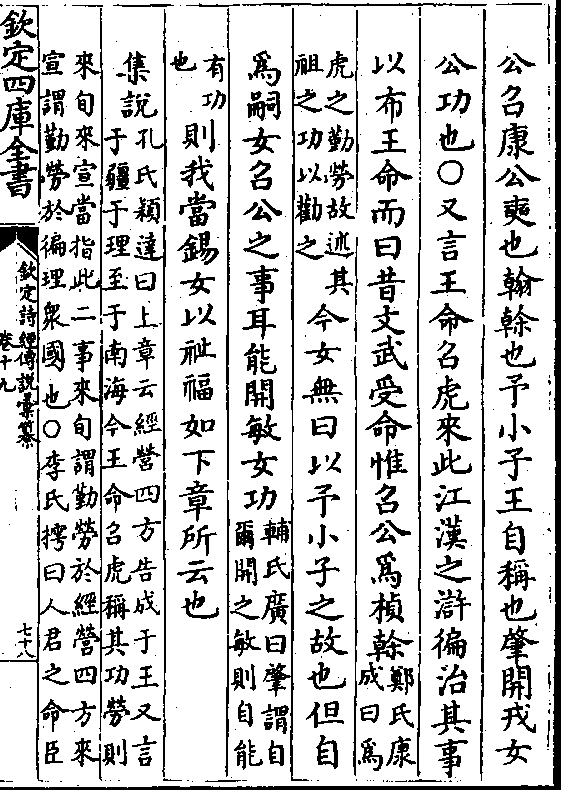 公召康公奭也翰榦也予小子王自稱也肇開戎女
公功也○又言王命召虎來此江漢之滸徧治其事
以布王命而曰昔文武受命惟召公爲楨榦
鄭氏康
成曰爲
虎之勤勞故述其
祖之功以勸之
今女無曰以予小子之故也但自
爲嗣女召公之事耳能開敏女功
輔氏廣曰肇謂自
爾開之敏則自能
有功
也
則我當錫女以祉福如下章所云也
集說
孔氏穎達曰上章云經營四方告成于王又言
于疆于理至于南海今王命召虎稱其功勞則
來旬來宣當指此二事來旬謂勤勞於經營四方來
宣謂勤勞於徧理衆國也○李氏樗曰人君之命臣
欽定四庫全書
欽定詩經傳說彙纂
卷十九
七十八